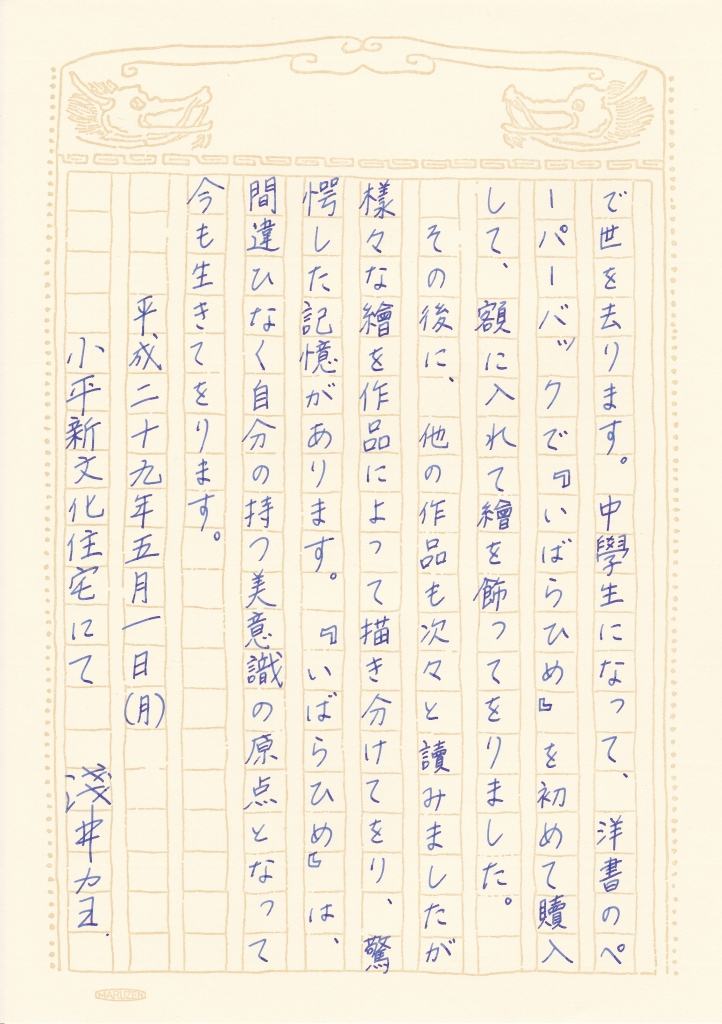 で世を去ります。中學生になって、洋書のペ
ーパーバックで『いばらひめ』を初めて購入
して、額に入れて繪を飾ってをりました。
その後に、他の作品も次々と讀みましたが
様々な繪を作品によって描き分けてをり、驚
愕した記憶があります。『いばらひめ』は、
間違ひなく自分の持つ美意識の原点となって
今も生きてをります。
平成二十九年五月一日(月)
小平新文化住宅にて 淺井カヨ
MARUZEN